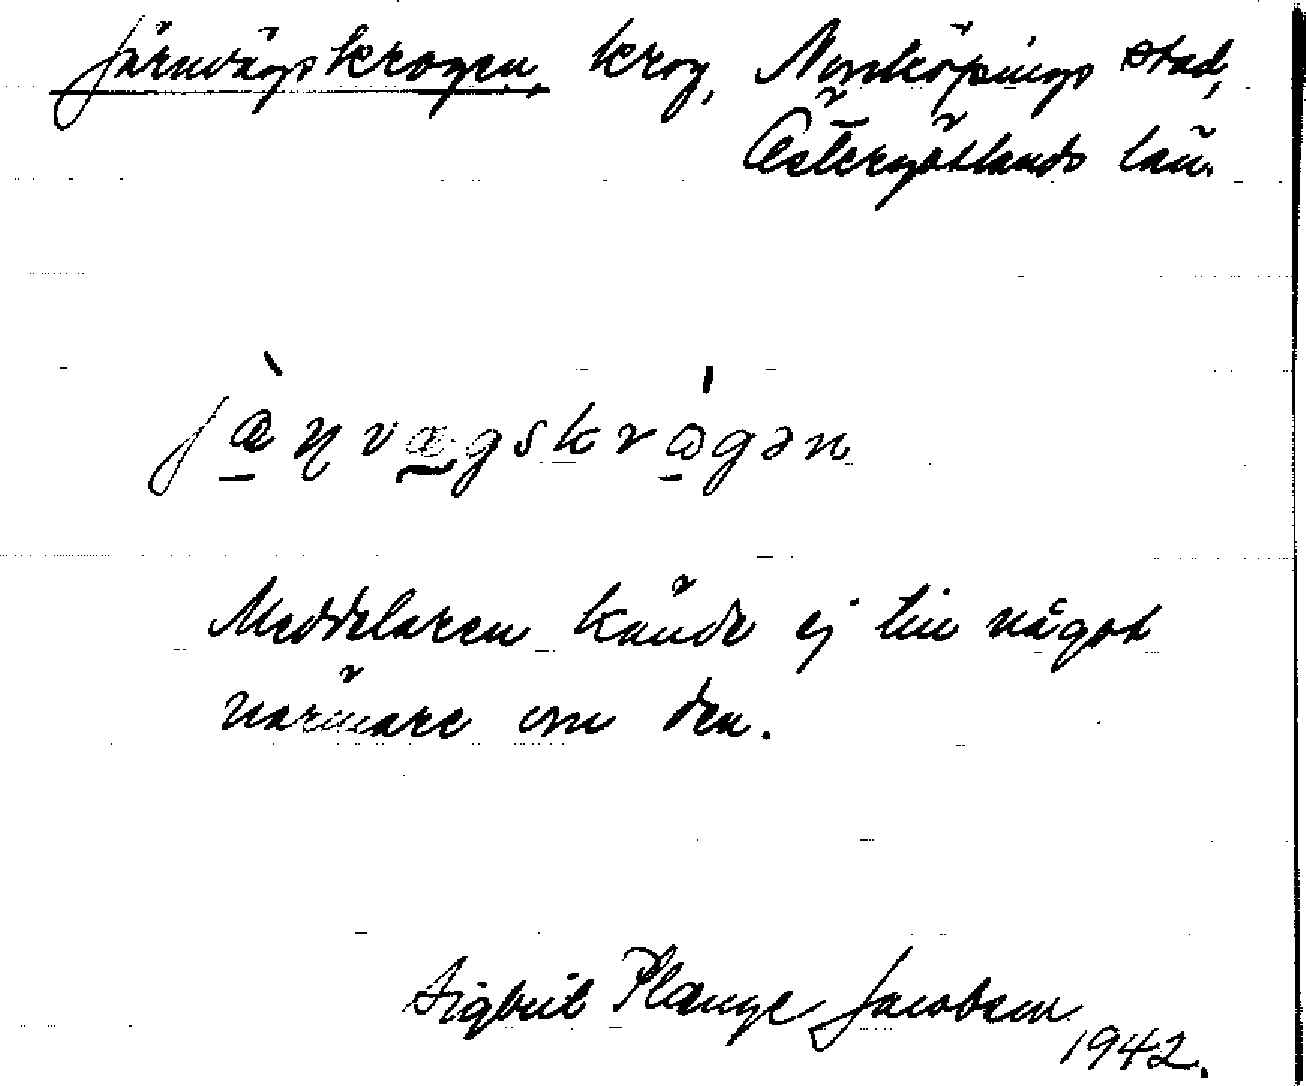 Järnvägskrogen, krog, Norrköpings stad,
Östergötlands län.
jæ̀ɳvægskrɷ́gən
Meddelaren kände ej till något
närmare om den.
Sigbrit Plænge Jacobson
1942.